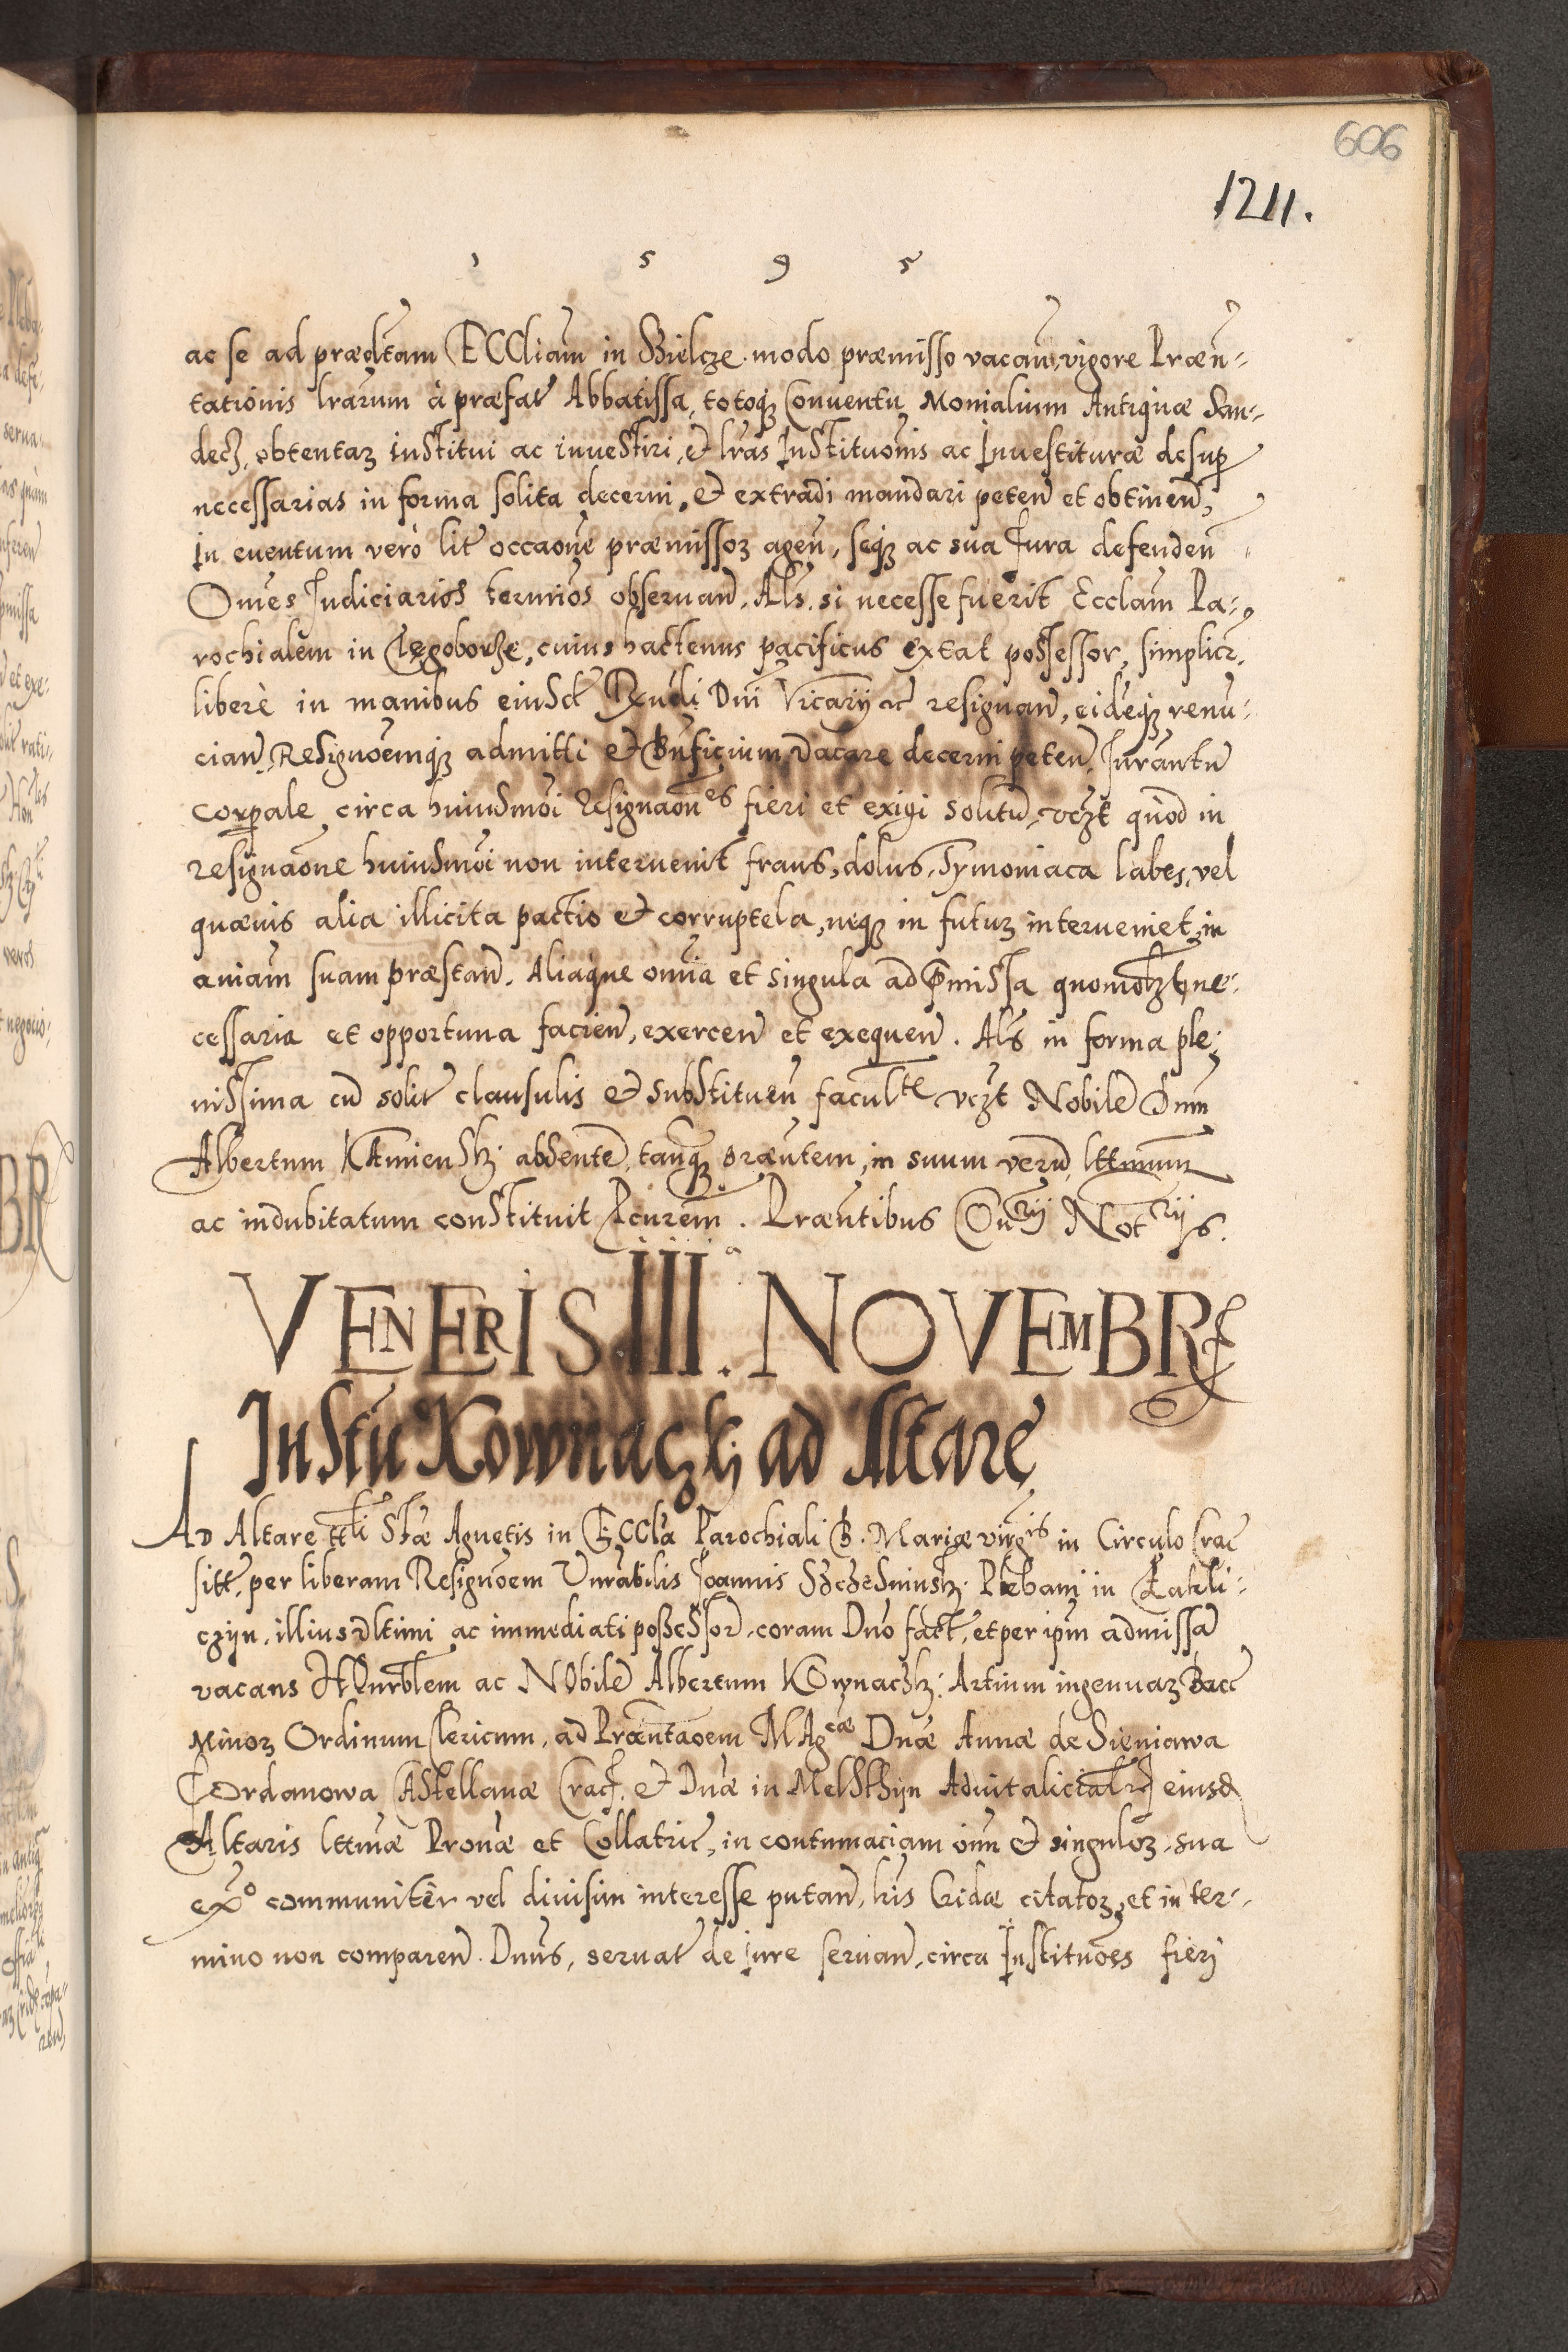 606
1211.
1 5 9 5
ac se ad prædctam ECCliam in Bielcze modo præmisso vacan, vigore Præn-
tationis lrarum à præfat Abbatissa, totoq3 Conventu Monialium Antiquæ San-
decz, obtentaz institui ac investiri, et lras Institutionis ac Investituræ desup
necessarias in forma solita decerni, et extradi mandari peten et obtinen,
in eventum verò lit occaone præmissoz agen, seq3 ac sua Jura defenden
Omes Judiciarios termios observan. Als. si necesse fuerit Ecclam Pa-
rochialem in, cuius hactenus pacificus extat possessor, simplicr,
liberè in manibus eiusd Rendi Dni Vicarij etc resignan, eideq3 renu-
cian, Resignoemq3 admitti et Bnficium vacare decerni peten, Jurantu
corporale circa huiusmoi Resignaones fieri et exigi solitu, vczt quod in
resignaone huiusmoi non intervenit fraus, dolus, symoniaca labes, vel
quævis alia illicita pactio et corruptela, neq3 in futuz interveniet, in
aniam suam præstan. Aliaque omia et singula ad pmissa quomolzt ne-
cessaria et opportuna facien, exercen et exequen. Als in forma ple-
nissima cu solit clausulis et substituen facultte vczt Nobile Dnm
Albertum KAmienskj absente, tanq3 præntem, in suum veru, lttimum
ac indubitatum constituit Pcurem. Præntibus Notrijs.
VENERIS III. NOVEMBR
InStu Kownaczkj ad Altare
AD Altare ttli Stæ Agnetis in ECCla Parochiali B. Mariæ virgis in Circulo Crac
sitt, per liberam Resignoem Vnrabilis Joannis Plebani in
czyn, illius vltimi ac immediati possessor, coram Dno fact, et per ipm admissa
vacans HOnrblem ac NObile Albertum KOwnaczkj: Artium ingenuaz Bacc
Minoz Ordinum Clericum, ad Præntaoem MAgcæ Dnæ Annæ de Sieniawa
JOrdanowa CAstellanæ Crac, et Dnæ in Melsthyn Advitalicialr eiusd
Altaris lttimæ Pronæ et Collatric, in contumaciam oim et singuloz, sua
exo communiter vel divisim interesse putan, lris Cridæ citatoz, et in ter-
mino non comparen. Dnus, servat de iure servan, circa Institutoes fieri